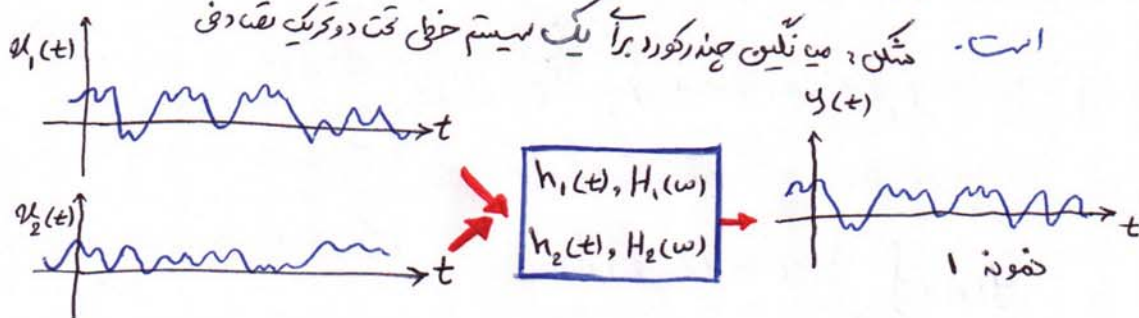 است. شکل: میانگین چند رکورد برای یک سیستم خطی تحت دو تحریک تصادفی
x₁(t)
t
x₂(t)
t
h₁(t), H₁(ω)
h₂(t), H₂(ω)
y(t)
t
نمونه ۱